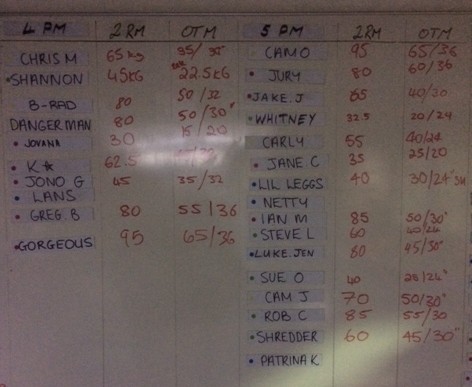 4 PM 2RM OTM
CHRIS M 65kg 35/35
SHANNON 45KG 22.5KG
B-RAD 80 50/32
DANGERMAN 80 50/30"
JOVANA 30 15/20
K★ 62.5
JONO G 45 35/32
LANS
GREG B 80 55/36
GORGEOUS 95 65/36
5 PM 2RM OTM
CAM O 95 65/36
JURY 80 60/36
JAKE.J 65 40/30
WHITNEY 32.5 20/24
CARLY 55 40/24
JANE C 35 25/20
LIL LEGGS 40 30/24"
NETTY
IAN M 85 50/30"
STEVE L 60 40/24
LUKE.JEN 80 45/30"
SUE O 40 25/24"
CAM J 70 50/30"
ROB C 85 55/30
SHREDDER 60 45/30"
PATRINA K